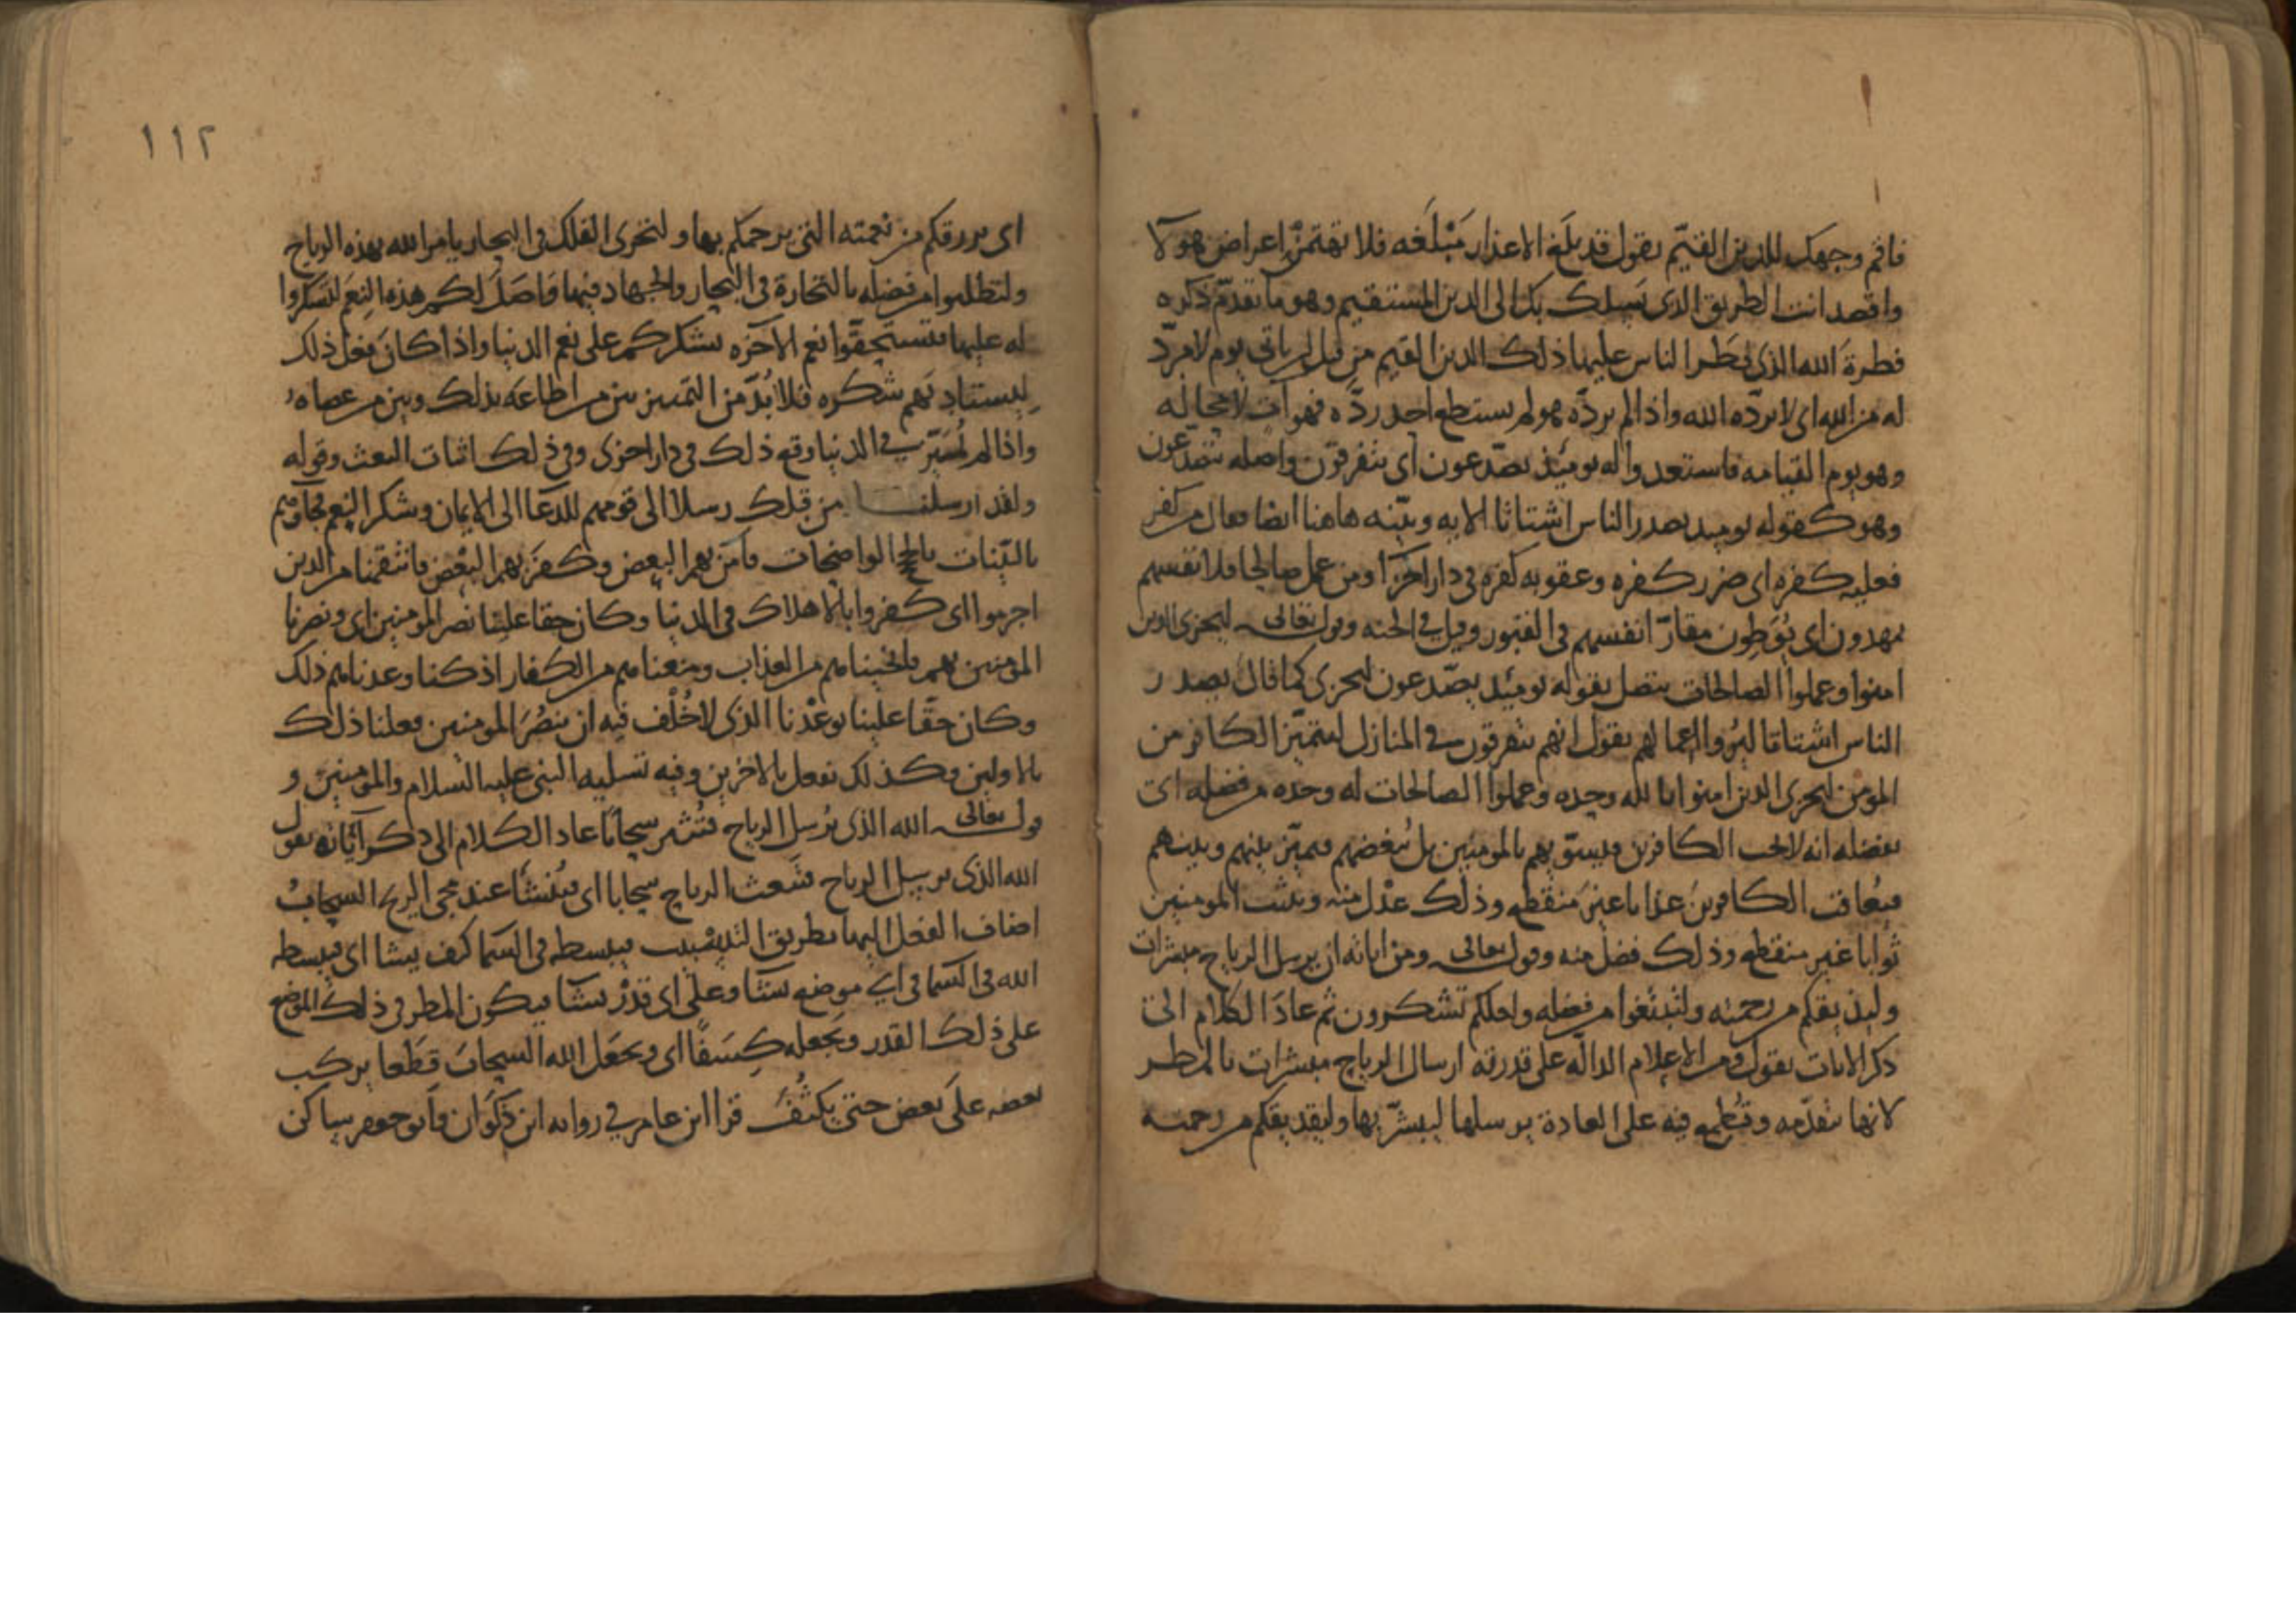 فاقم وجهك للدين القيّم يقول قد بلغ الاعذار مَبْلَغه فلا يهمّنك اعراض هولآ
واقصد انت الطريق الذى يسلك بك الى الدين المستقيم وهو ما تقدّم ذكره
فطرةَ الله الذى فطر الناس عليها ذلك الدين القيم من قبل ان ياتى يوم لا مردّ
له من الله اى لا يردّه الله واذا لم يردّه هو لم يستطع احد ردّه فهو آتٍ لا محالة
وهو يوم القيامه فاستعدوا له يومئذ يصّدعون اى يتفرقون واصله يتصدعون
وهو كقوله يوميذ يصدر الناس اشتاتا الايه وبيّنه هاهنا ايضا فقال من كفر
فعليه كفره اى ضرر كفره وعقوبه كفره فى دار اخرى ومن عمل صالحا فلانفسهم
يمهدون اى يُوَطِون مقارّ انفسهم فى القبور وقيل فى الجنه وقوله تعالى ليجزى الذين
امنوا وعملوا الصالحات يتصل بقوله يومئيذ يصّدعون ليجزى كما قال يصدر
الناس اشتاتا ليُرَوا اعمالهم يقول انهم يتفرقون فى المنازل ليتميّز الكافر من
المومن ليجزى الذين امنوا بالله وحده وعملوا الصالحات له وحده من فضله اى
بفضله انه لا يحب الكافرين فيسوّى بهم بالمومنين بل يُبغضهم فيميّز بينهم وبينهم
فيُعاقب الكافرينَ عذابا غيرَ منقطع وذلك عدْل منه ويثيب المومنين
ثوابا غير منقطع وذلك فضل منه وقوله تعالى ومن اياته ان يرسل الرياح مبشرات
وليذيقكم من رحمته ولتبتغوا من فضله ولعلكم تشكرون ثم عادَ الكلام الى
ذكر الايات يقول ومن الاعلام الدالّه على قدرته ارسال الرياح مبشرات بالمطر
لانها تتقدّمه وتُطمِع فيه على العادة يرسلها ليبشّر بها وليذيقكم من رحمته
١١٢
اى يرزقكم من نعمته التى يرحمكم بها ولتجرى الفلك فى البحار يامر الله بهذه الرياح
ولتطلبوا من فضله بالتجارة فى البحار والجهاد فيها وَاصَلَ لكم هذه النِعَم لتشكروا
له عليها فتستحِقّوا نعم الآخره بشكركم على نعم الدنيا واذا كانَ فعل ذلك
ليستادِيَهم شكره فلا بُدّ من التمييز بين من اطاعه بذلك وبين من عصاه
واذا لم يُميّز فى الدنيا وقع ذلك فى دار اخرى وفى ذلك اثبات البعث وقوله
ولقد ارسلنا من قبلك رسلا الى قومهم للدعآ الى الايمان وشكر النِعم فجآؤهم
بالبيّنات بالحجج الواضحات فآمن بهم البعض وكفَرَ بهم البعْض فانتقمنا من الذين
اجرموا اى كفروا بالاهلاك فى الدنيا وكان حقا علينا نصر المومنين اى ونصرنا
المومنين بهم بانجيناهم من العذاب ومنعناهم من الكفار اذ كنا وعدناهم ذلك
وكان حقّا علينا بوعْدنا الذى لا خُلْفَ فيه ان ننصُرَ المومنين فعلنا ذلك
بالاولين وكذلك نفعل بالاخرين وفيه تسليه النبى عليه السلام والمومنين و
قوله تعالى الله الذى يُرسل الرياح فتُثير سحابًا عاد الكلام الى ذكر آياته يقول
الله الذى يرسل الرياح فتبعث الرياح سحابا اى فيُنشأ عند مجى الريح السحابُ
اضاف الفعل اليها بطريق التسبيب فيبسطه فى السما كيف يشا اى فيبسطه
الله فى السما فى اى موضع يشآ وعلى اى قدْر يشآ فيكون المطر فى ذلك الموضع
على ذلك القدر ويجعله كِسَفًا اى ويجعَل الله السحابَ قِطَعا يركب
بعضه على بعض حتى يَكثُفَ قرا ابن عامر فى روايه ابن ذَكوَان وابو جعفر ساكن